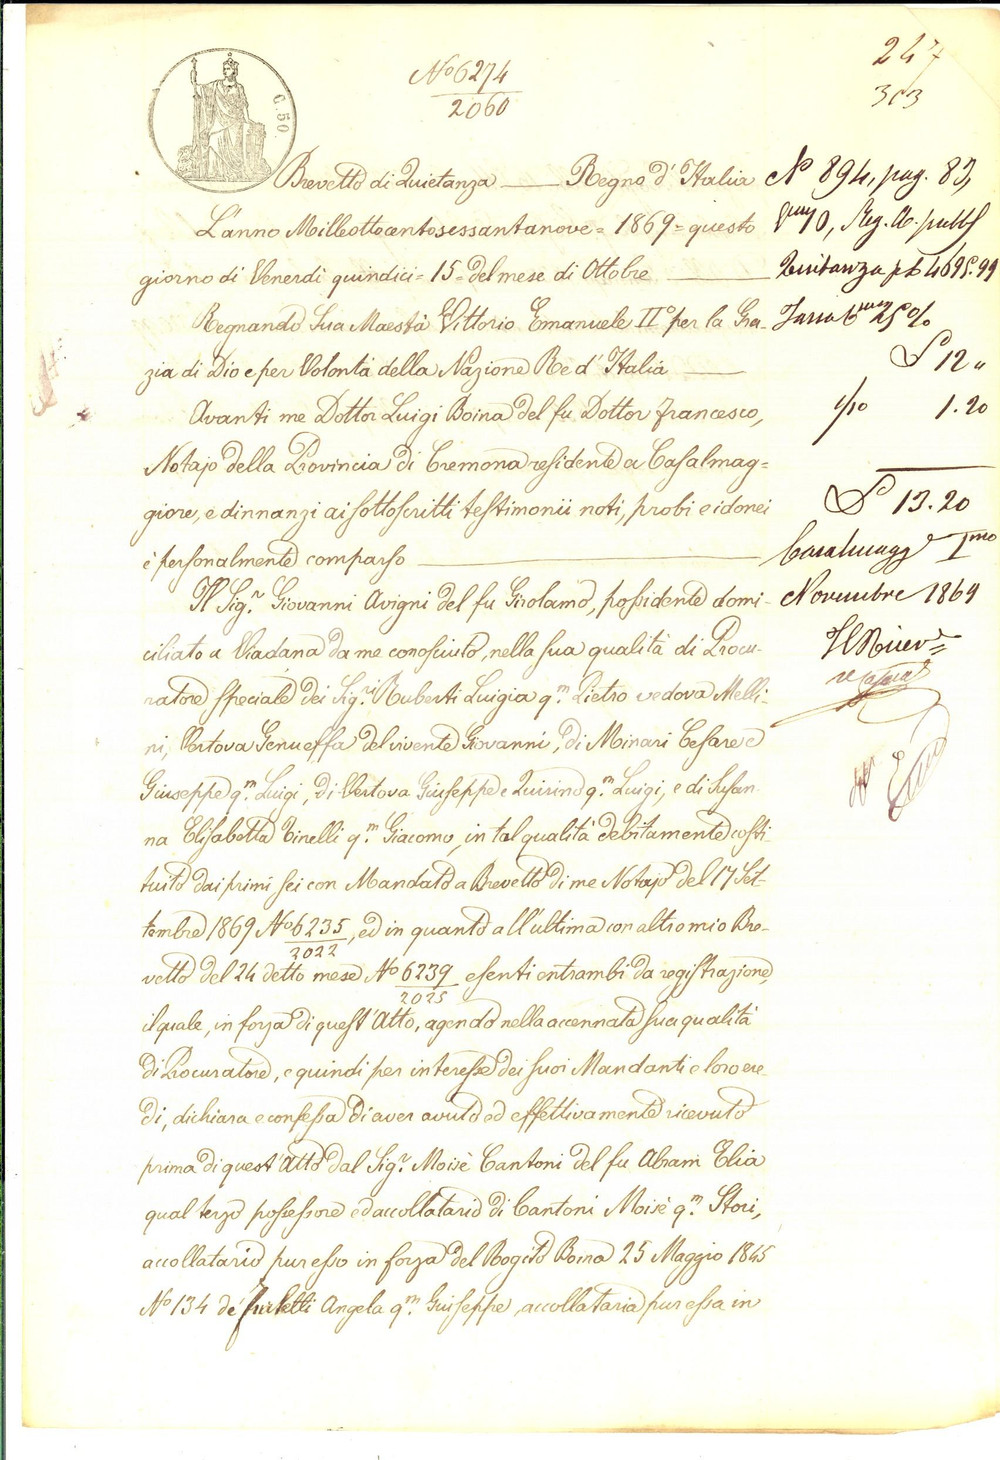 247
303
No 6274
2060
C. 50.
Brevetto di Quietanza — Regno d'Italia
L'anno Milleottocentosessantanove = 1869 = questo
giorno di Venerdi quindici = 15 = del mese di Ottobre
Regnando Sua Maestà Vittorio Emanuele II° per la Gra-
zia di Dio e per Volontà della Nazione Re d'Italia
Avanti me Dottor Luigi Boina del fu Dottor Francesco,
Notajo della Provincia di Cremona residente a Casalmag=
giore, e dinnanzi ai sottoscritti testimonii noti, probi e idonei
è personalmente comparso
Il Sig.r Giovanni Avigni del fu Girolamo, possidente domi-
ciliato a Viadana da me conosciuto, nella sua qualità di Procu-
ratore speciale dei Sig.ri Ruberti Luigia q.m Pietro vedova Melli-
ni, Vertova Genueffa del vivente Giovanni, di Minari Cesare e
Giuseppe q.m Luigi, di Vertova Giuseppe e Quirino q.m Luigi, e di Susan-
na Elisabetta Tinelli q.m Giacomo, in tal qualità debitamente costi-
tuito dai primi sei con Mandato a Brevetto di me Notajo del 17 Set-
tembre 1869 No 6235
2022, ed in quanto all'ultima con altro mio Bre-
vetto del 24 detto mese No 6239
2025 esenti entrambi da registrazione,
il quale, in forza di quest'Atto, agendo nella accennata sua qualità
di Procuratore, e quindi per interesse dei suoi Mandanti e loro ere-
di, dichiara e confessa di aver avuto ed effettivamente ricevuto
prima di quest'Atto dal Sig.r Moisè Cantoni del fu Abram Elia
qual terzo possessore ed accollatario di Cantoni Moisè q.m Stori,
accollatario pur esso in forza del Rogito Boina 25 Maggio 1845
No 134 de Furletti Angela q.m Giuseppe, accollataria pur essa in
No 894, pag. 83,
10, Reg.
Quitanza p £ 4695.99
25 %
£ 12 "
1/10 1.20
£ 13.20
Casalmagg.e 1mo
Novembre 1869
Il Ricev.e